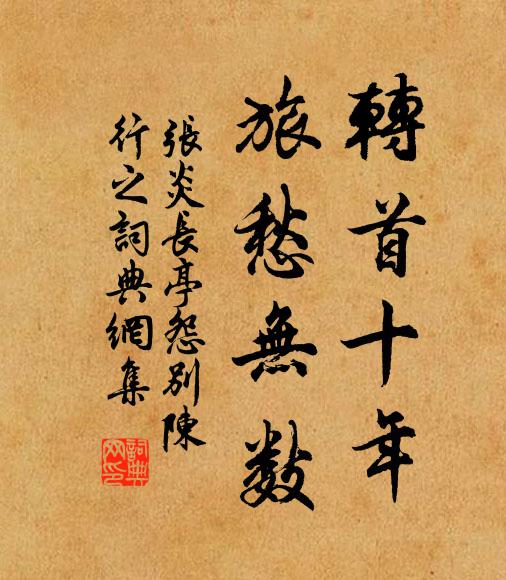 轉首十年
旅愁無數
張炎長亭怨別陳
行之詞典網集
詞典網印